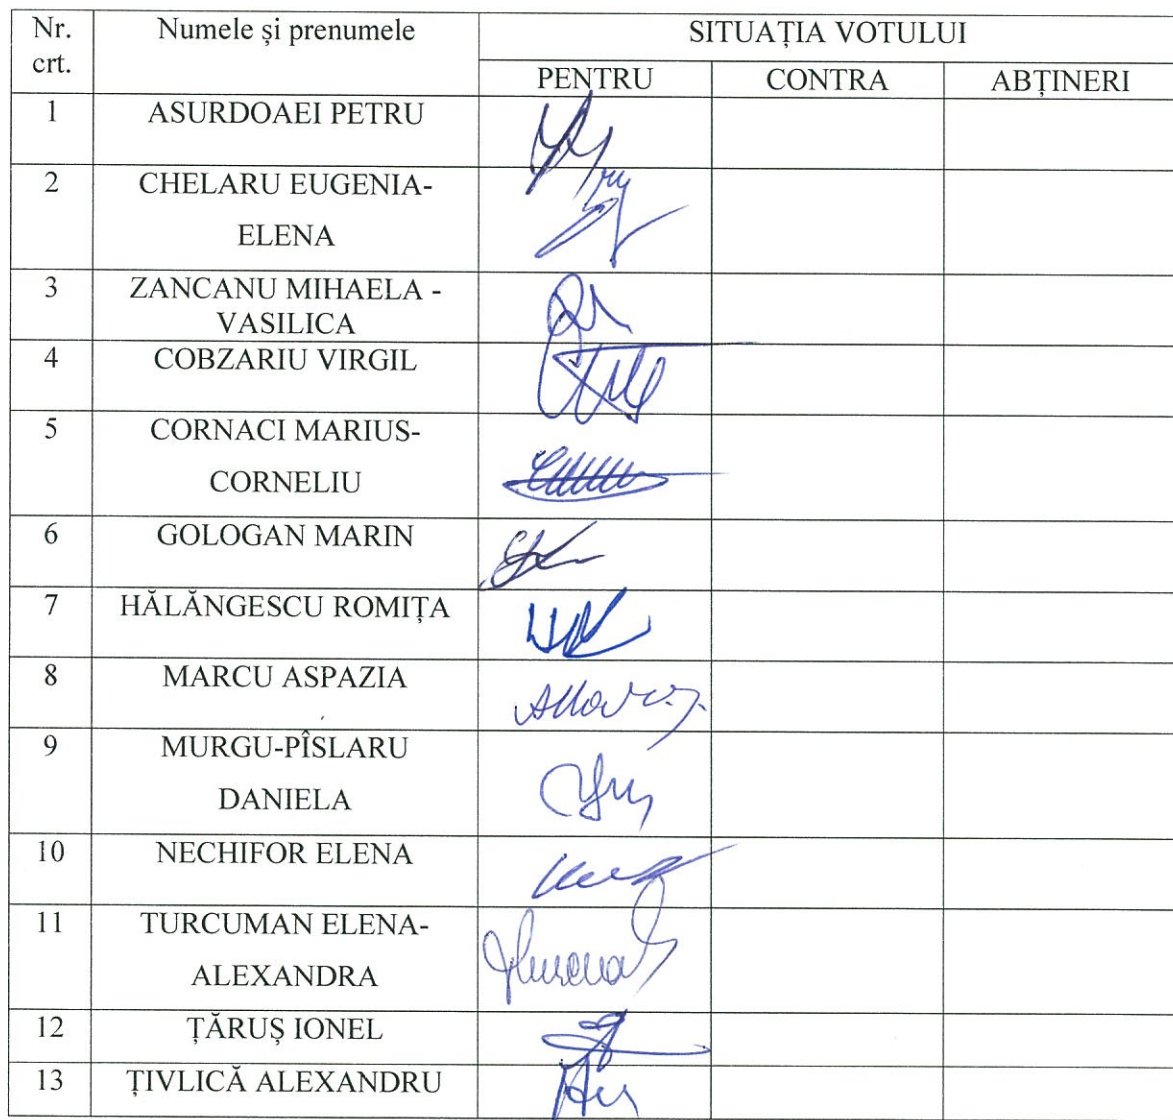 Nr. crt. Numele și prenumele SITUAȚIA VOTULUI
PENTRU CONTRA ABȚINERI
1 ASURDOAEI PETRU
2 CHELARU EUGENIA-
ELENA
3 ZANCANU MIHAELA -
VASILICA
4 COBZARIU VIRGIL
5 CORNACI MARIUS-
CORNELIU
6 GOLOGAN MARIN
7 HĂLĂNGESCU ROMIȚA
8 MARCU ASPAZIA
9 MURGU-PÎSLARU
DANIELA
10 NECHIFOR ELENA
11 TURCUMAN ELENA-
ALEXANDRA
12 ȚĂRUȘ IONEL
13 ȚIVLICĂ ALEXANDRU